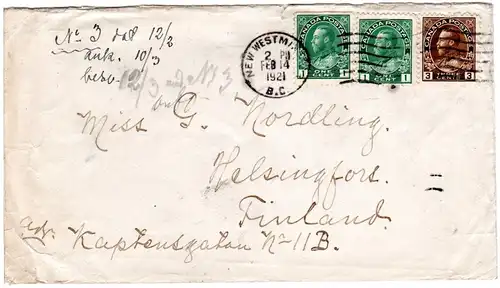 No 3 dat 12/2
ank. 10/3
besv.
12/3 med No 3
CANADA POSTAGE
1 ONE CENT 1
CANADA POSTAGE
1 CENT 1
CANADA POSTAGE
3 THREE CENTS 3
NEW WESTMIN
2 PM
FEB 14
1921
B.C.
Miss G. Nordling.
Helsingfors.
Finland.
Adr. Kaptensgatan No 11 B.